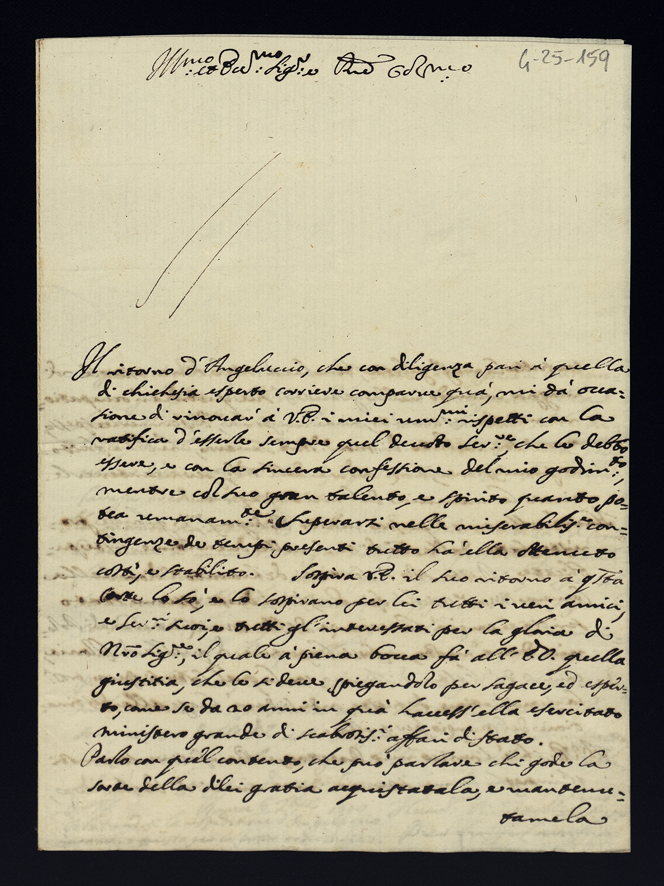 Ill.mo et Ecc.mo Sig.r e P.ne Col.mo
4-25-159
Il ritorno d'Angeluccio, che con diligenza pari à quella
di chichesia esperto corriere comparve quà, mi dà occa=
sione di rinovar à V.E. i miei um.mi rispetti con la
ratifica d'esserle sempre quel devoto Ser.re, che le debbo
essere, e con la sincera confessione del mio godim.to,
mentre col suo gran talento, e spirito quanto po=
tea umanam.te superarsi nelle miserabilis.e con=
tingenze de tempi presenti tutto hà ella ottenuto
costì, e stabilito. Sospira V.E. il suo ritorno à q.sta
Corte lo sò, e lo sospirano per lei tutti i veri amici,
e ser.ri suoi, e tutti gl'interessati per la gloria di
N.ro Sig.re, il quale à piena bocca fà all'E.V. quella
giustitia, che le si deve, spiegandolo per sagace, ed esper=
to, come se da 20 anni in quà havess'ella esercitato
ministero grande di scabrosis.i affari di stato.
Parlo con quel contento, che può parlare chi gode la
sorte della di lei gratia acquistatala, e mantenu=
tamela